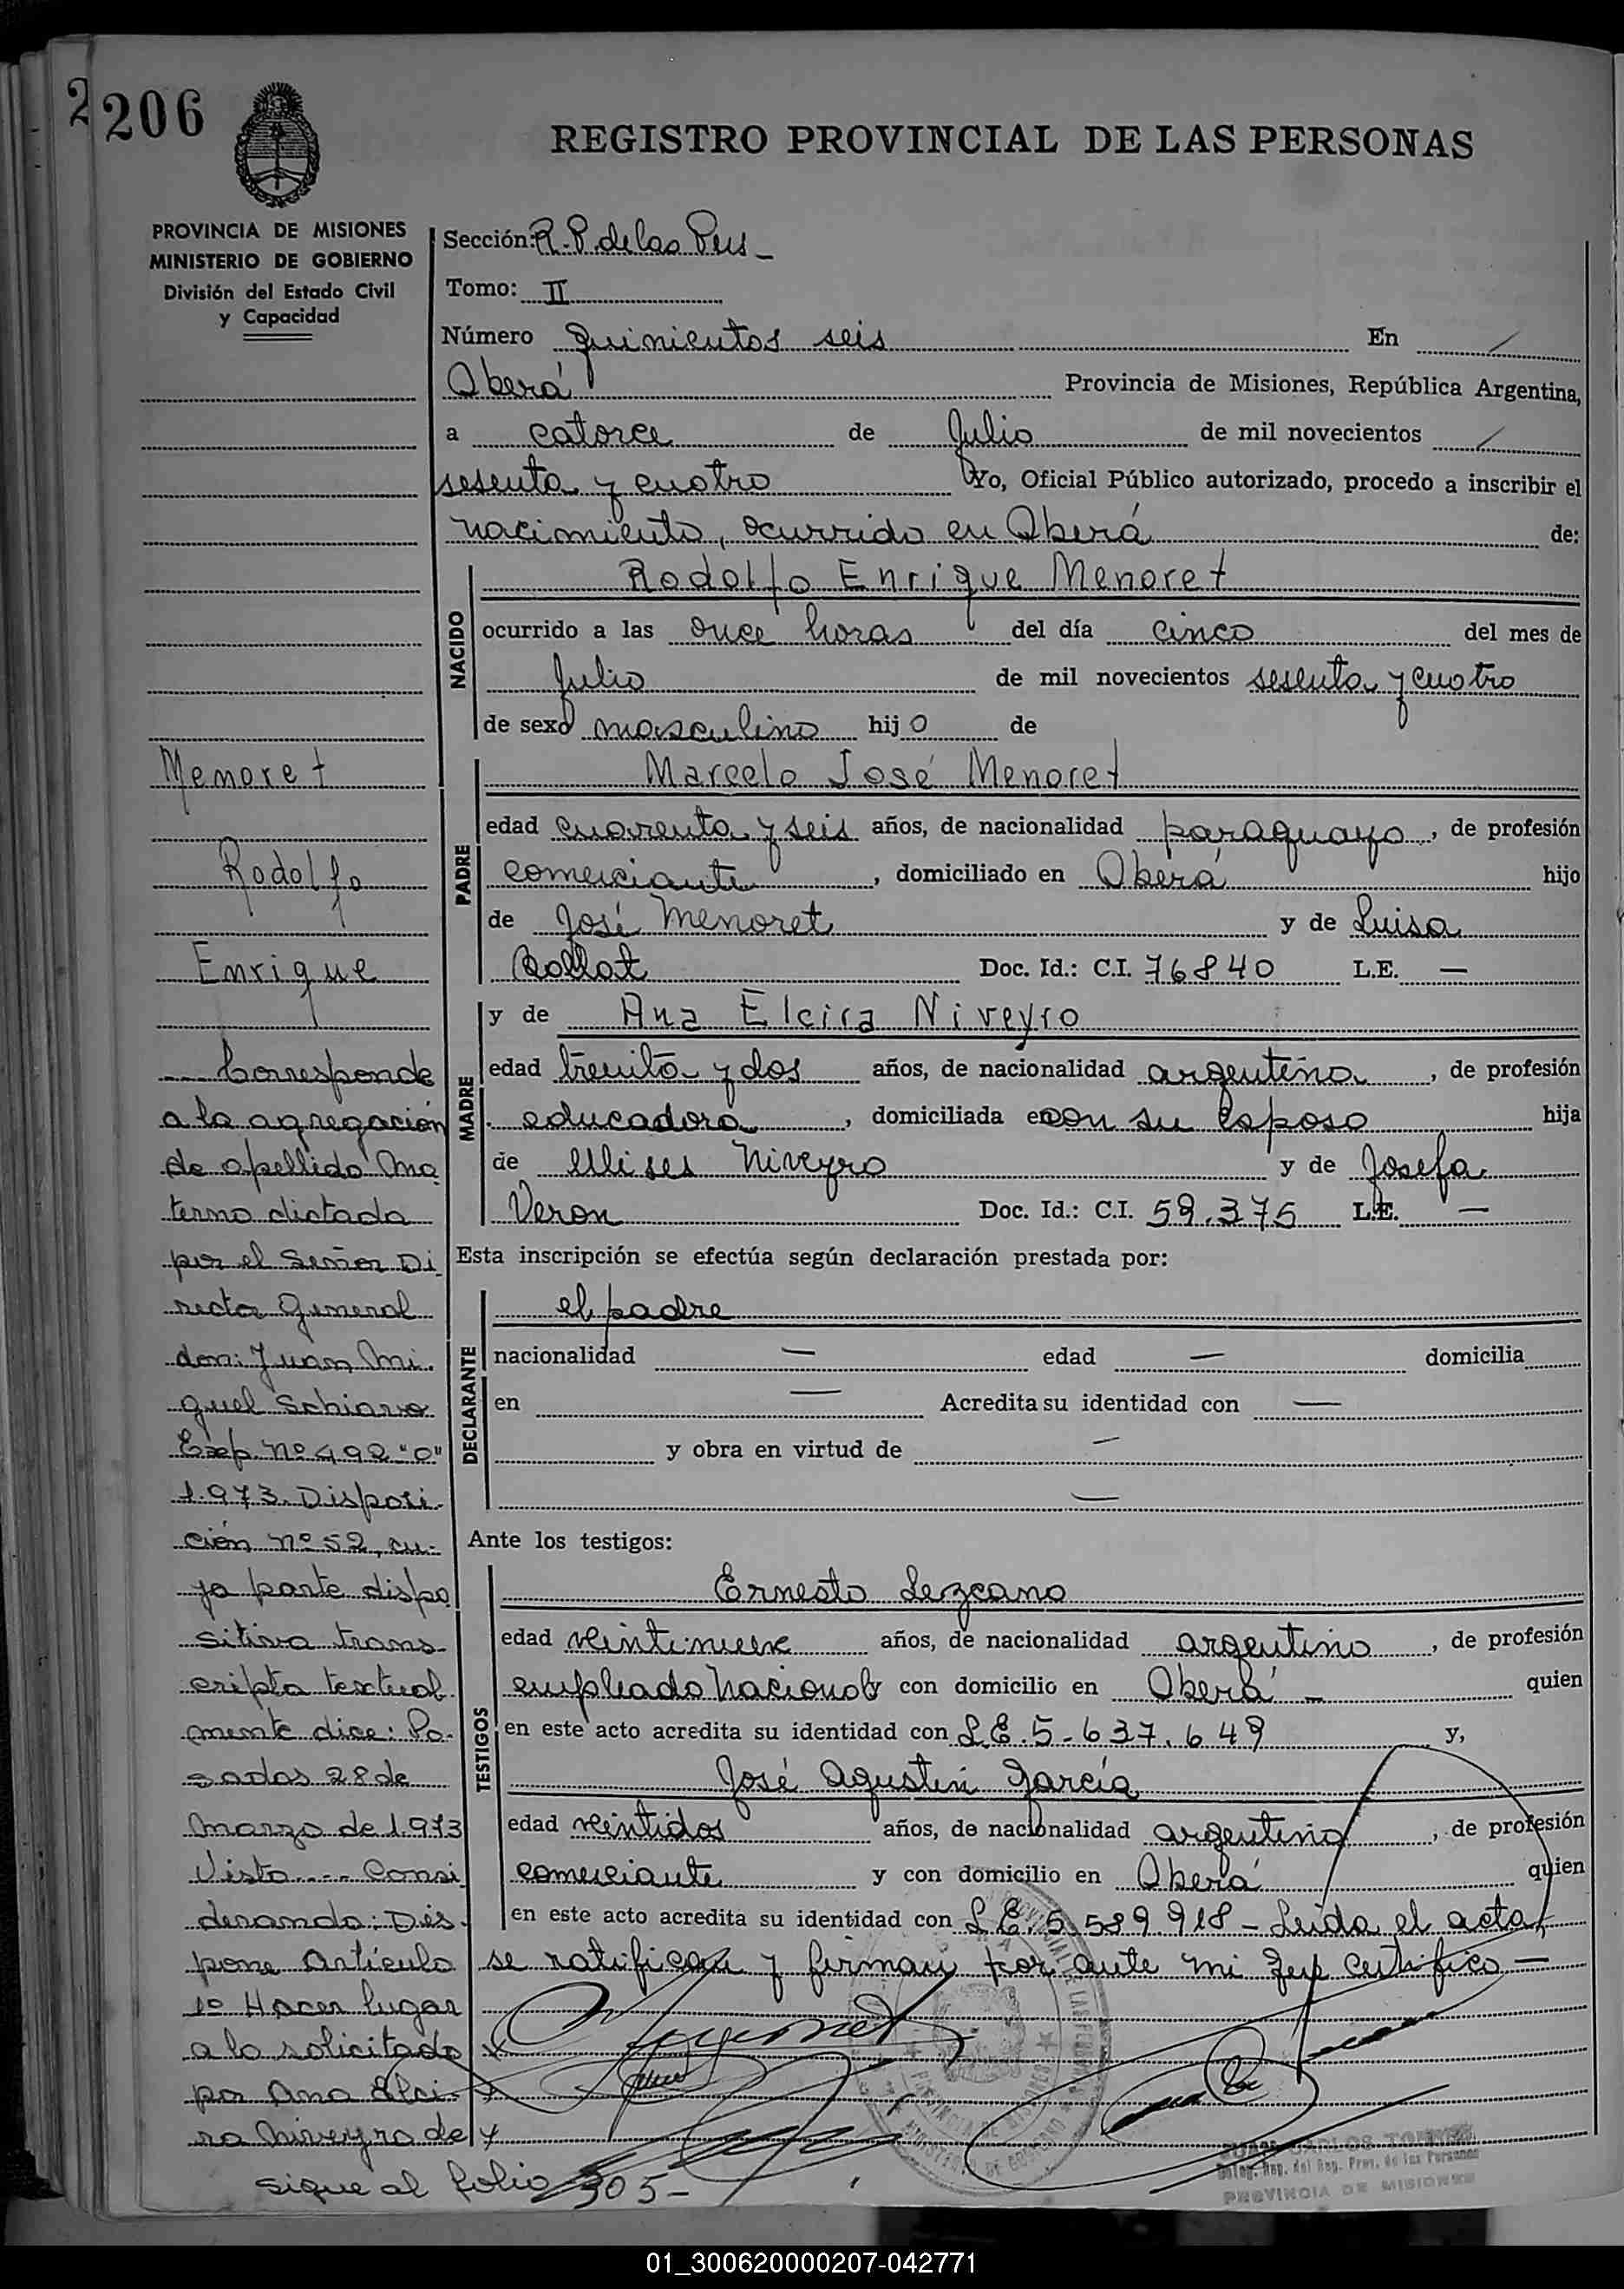 2
206
REGISTRO PROVINCIAL DE LAS PERSONAS
PROVINCIA DE MISIONES
MINISTERIO DE GOBIERNO
División del Estado Civil
y Capacidad
Menoret
Rodolfo
Enrique
Corresponde
a la agregación
de apellido Ma
terno dictada
por el Señor Di
rector General
don: Juan Mi.
guel Schiavo
Exp. Nº 492 "O"
1.973. Disposi.
ción nº 52, cu-
ya parte dispo
sitiva trans-
cripta textual.
mente dice: Po.
sadas 28 de
Marzo de 1.973
Visto.... Consi
derando: Dis.
pone Artículo
1º Hacer lugar
a lo solicitado
por Ana Elci-
ra Niveyro de
sigue al folio 305-
Sección: R. P. de las Pers -
Tomo: II
Número quinientos seis En
Oberá Provincia de Misiones, República Argentina,
a catorce de Julio de mil novecientos
sesenta y cuatro Yo, Oficial Público autorizado, procedo a inscribir el
nacimiento, ocurrido en Oberá de:
NACIDO
Rodolfo Enrique Menoret
ocurrido a las once horas del día cinco del mes de
Julio de mil novecientos sesenta y cuatro
de sexo masculino hijo de
PADRE
Marcelo José Menoret
edad cuarenta y seis años, de nacionalidad paraguayo, de profesión
comerciante, domiciliado en Oberá hijo
de José Menoret y de Luisa
Rollat Doc. Id.: C.I. 76840 L.E. —
MADRE
y de Ana Elcira Niveyro
edad treinta y dos años, de nacionalidad argentina, de profesión
educadora, domiciliada en con su esposo hija
de Ulises Niveyro y de Josefa
Veron Doc. Id.: C.I. 59.375 L.E. —
Esta inscripción se efectúa según declaración prestada por:
DECLARANTE
el padre
nacionalidad — edad — domicilia
en — Acredita su identidad con —
y obra en virtud de —
—
Ante los testigos:
TESTIGOS
Ernesto Lezcano
edad veintinueve años, de nacionalidad argentino, de profesión
empleado Nacional y con domicilio en Oberá - quien
en este acto acredita su identidad con L.E. 5-637.649 y,
José Agustin García
edad veintidos años, de nacionalidad argentino, de profesión
comerciante y con domicilio en Oberá quien
en este acto acredita su identidad con L.E. 5.589.918 - Leida el acta,
se ratifican y firman por ante mi que certifico —
JUAN CARLOS
Deleg. Rep. del Reg. Prov. de las Personas
PROVINCIA DE MISIONES
01_300620000207-042771